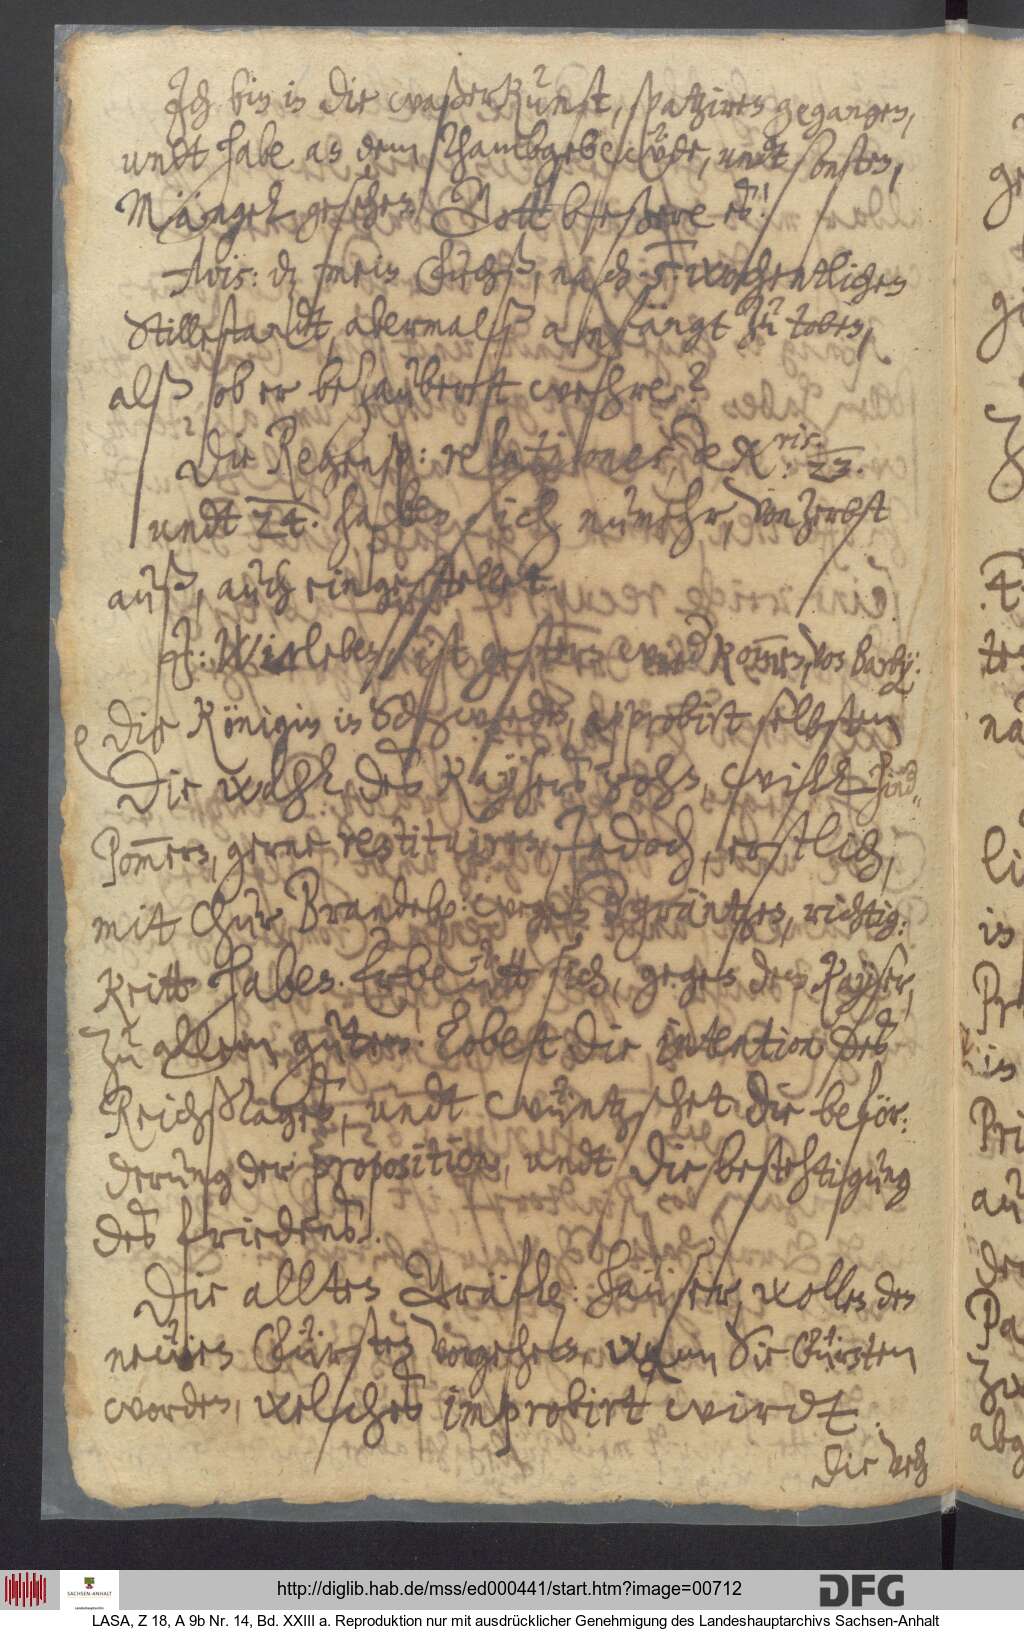 Ich bin in die waßerkunst, spatziren gegangen,
undt habe an dem Thambgebeẅde, undt sonsten,
Mängel gesehen, Gott beßere es!
Avis: dz mein Fuchß, nach 5 wochentlichen
Stillestandt, abermalß anfängt zu toben,
alß ob er bezaubert wehre?
Die Regensp: relationes, de X. bris. 23.
undt 24. haben sich nunmehr, von Zerbst
auß, auch eingestellet.
H: Wieleben, ist gestern wied kom̄en, von Barby.
Die Königin in Schweden, approbirt selbsten
Die wahl, des Kaysers sohn, will hind„
Pom̄ern, gerne restituiren, Jedoch, erstlich,
mit Chur Brandebg: wegen der gräntzen, richtig:
keitt haben. Erbeütt sich, gegen den Kayser,
zu allem guten. Lobet die intention des
Reichßtages, undt wüntzschet die beför:
derung der proposition, undt die bestehtigung
des friedens.
Die allten Gräfle: haüser, wollen den
neüen Fürsten vorgehen, wann Sie Fürsten
worden, welches improbirt wirdt.
Die
http://diglib.hab.de/mss/ed000441/start.htm?image=00712
DFG
SACHSEN-ANHALT
LASA, Z 18, A 9b Nr. 14, Bd. XXIII a. Reproduktion nur mit ausdrücklicher Genehmigung des Landeshauptarchivs Sachsen-Anhalt